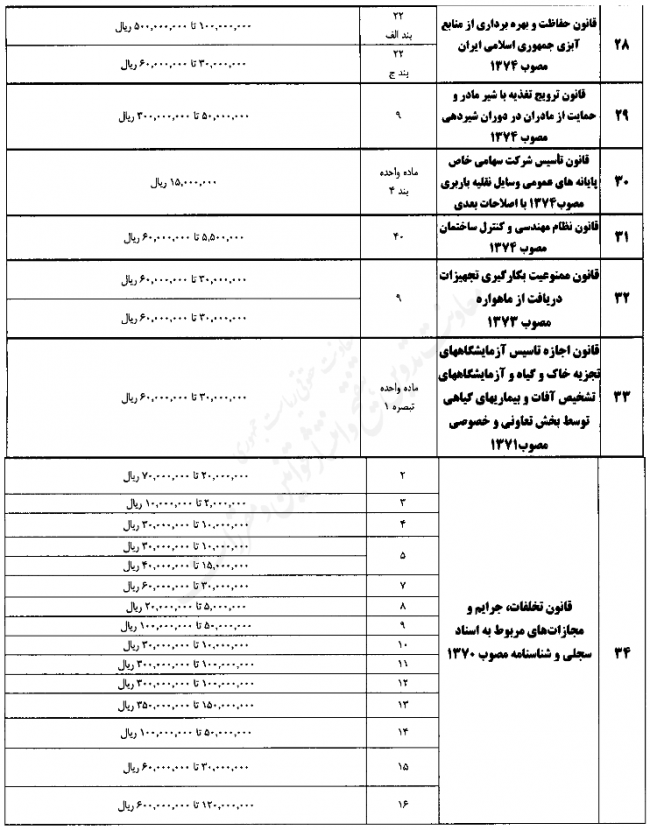 ۲۸
قانون حفاظت و بهره برداری از منابع
آبزی جمهوری اسلامی ایران
مصوب ۱۳۷۴
۲۲
بند الف
۱۰۰,۰۰۰,۰۰۰ تا ۵۰۰,۰۰۰,۰۰۰ ریال
۲۲
بند ج
۳۰,۰۰۰,۰۰۰ تا ۶۰,۰۰۰,۰۰۰ ریال
۲۹
قانون ترویج تغذیه با شیر مادر و
حمایت از مادران در دوران شیردهی
مصوب ۱۳۷۴
۹
۵۰,۰۰۰,۰۰۰ تا ۳۰۰,۰۰۰,۰۰۰ ریال
۳۰
قانون تأسیس شرکت سهامی خاص
پایانه های عمومی وسایل نقلیه باربری
مصوب۱۳۷۴ با اصلاحات بعدی
ماده واحده
بند ۴
۱۵,۰۰۰,۰۰۰ ریال
۳۱
قانون نظام مهندسی و کنترل ساختمان
مصوب ۱۳۷۴
۴۰
۵,۵۰۰,۰۰۰ تا ۶۰,۰۰۰,۰۰۰ ریال
۳۲
قانون ممنوعیت بکارگیری تجهیزات
دریافت از ماهواره
مصوب ۱۳۷۳
۹
۳۰,۰۰۰,۰۰۰ تا ۶۰,۰۰۰,۰۰۰ ریال
۳۰,۰۰۰,۰۰۰ تا ۶۰,۰۰۰,۰۰۰ ریال
۳۳
قانون اجازه تاسیس آزمایشگاههای
تجزیه خاک و گیاه و آزمایشگاههای
تشخیص آفات و بیماریهای گیاهی
توسط بخش تعاونی و خصوصی
مصوب۱۳۷۱
ماده واحده
تبصره ۱
۳۰,۰۰۰,۰۰۰ تا ۶۰,۰۰۰,۰۰۰ ریال
۳۴
قانون تخلفات، جرایم و
مجازات‌های مربوط به اسناد
سجلی و شناسنامه مصوب ۱۳۷۰
۲
۲۰,۰۰۰,۰۰۰ تا ۷۰,۰۰۰,۰۰۰ ریال
۳
۲,۰۰۰,۰۰۰ تا ۱۰,۰۰۰,۰۰۰ ریال
۴
۱۰,۰۰۰,۰۰۰ تا ۳۰,۰۰۰,۰۰۰ ریال
۵
۱۰,۰۰۰,۰۰۰ تا ۳۰,۰۰۰,۰۰۰ ریال
۱۵,۰۰۰,۰۰۰ تا ۴۰,۰۰۰,۰۰۰ ریال
۷
۳۰,۰۰۰,۰۰۰ تا ۶۰,۰۰۰,۰۰۰ ریال
۸
۵,۰۰۰,۰۰۰ تا ۲۰,۰۰۰,۰۰۰ ریال
۹
۵۰,۰۰۰,۰۰۰ تا ۱۰۰,۰۰۰,۰۰۰ ریال
۱۰
۱۰,۰۰۰,۰۰۰ تا ۳۰,۰۰۰,۰۰۰ ریال
۱۱
۱۰۰,۰۰۰,۰۰۰ تا ۳۰۰,۰۰۰,۰۰۰ ریال
۱۲
۱۰۰,۰۰۰,۰۰۰ تا ۳۰۰,۰۰۰,۰۰۰ ریال
۱۳
۱۵۰,۰۰۰,۰۰۰ تا ۳۵۰,۰۰۰,۰۰۰ ریال
۱۴
۵۰,۰۰۰,۰۰۰ تا ۱۰۰,۰۰۰,۰۰۰ ریال
۱۵
۳۰,۰۰۰,۰۰۰ تا ۶۰,۰۰۰,۰۰۰ ریال
۱۶
۱۲۰,۰۰۰,۰۰۰ تا ۶۰۰,۰۰۰,۰۰۰ ریال